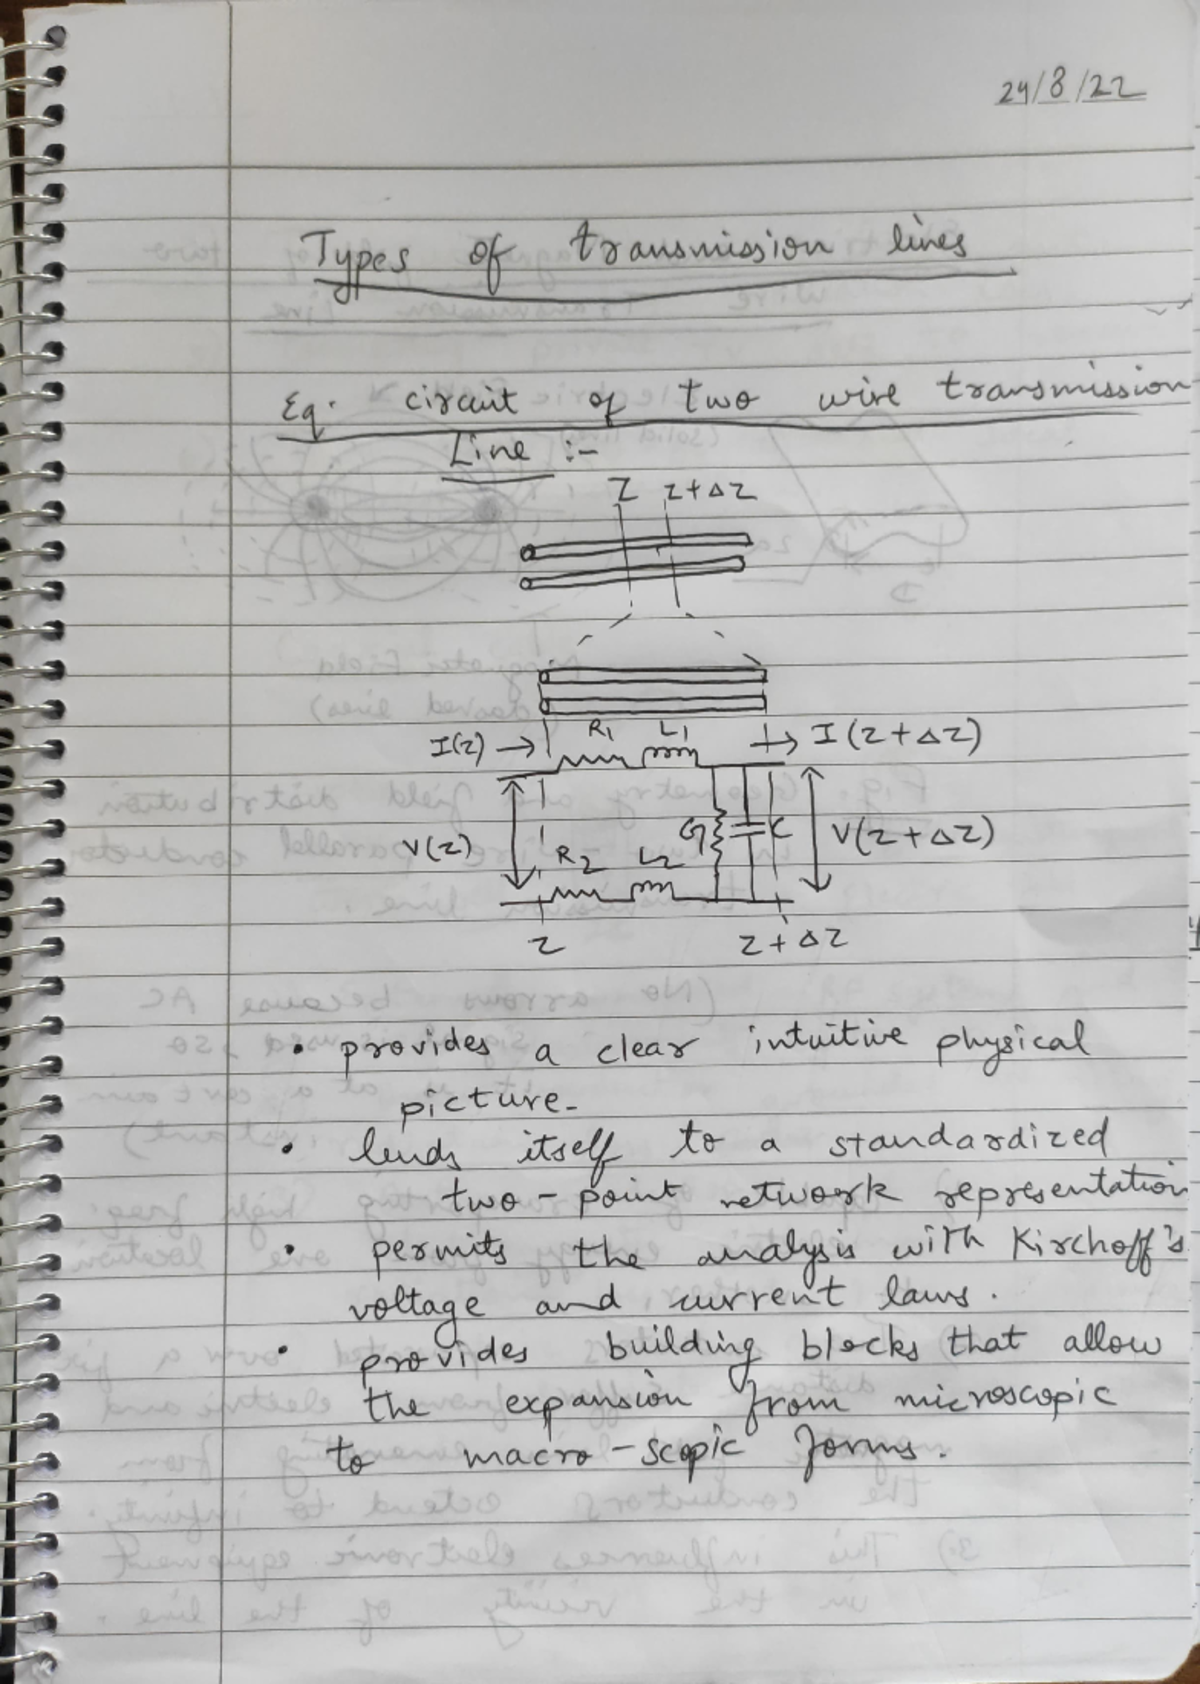 24/8/22
Types of transmission lines
Eq. circuit of two wire transmission
Line :-
Z z+Δz
I(z) → R1 L1 → I(z+Δz)
V(z) G C V(z+Δz)
R2 L2
z z+Δz
• provides a clear intuitive physical
picture.
• lends itself to a standardized
two-point network representation
• permits the analysis with Kirchoff's
voltage and current laws.
• provides building blocks that allow
the expansion from microscopic
to macro-scopic forms.